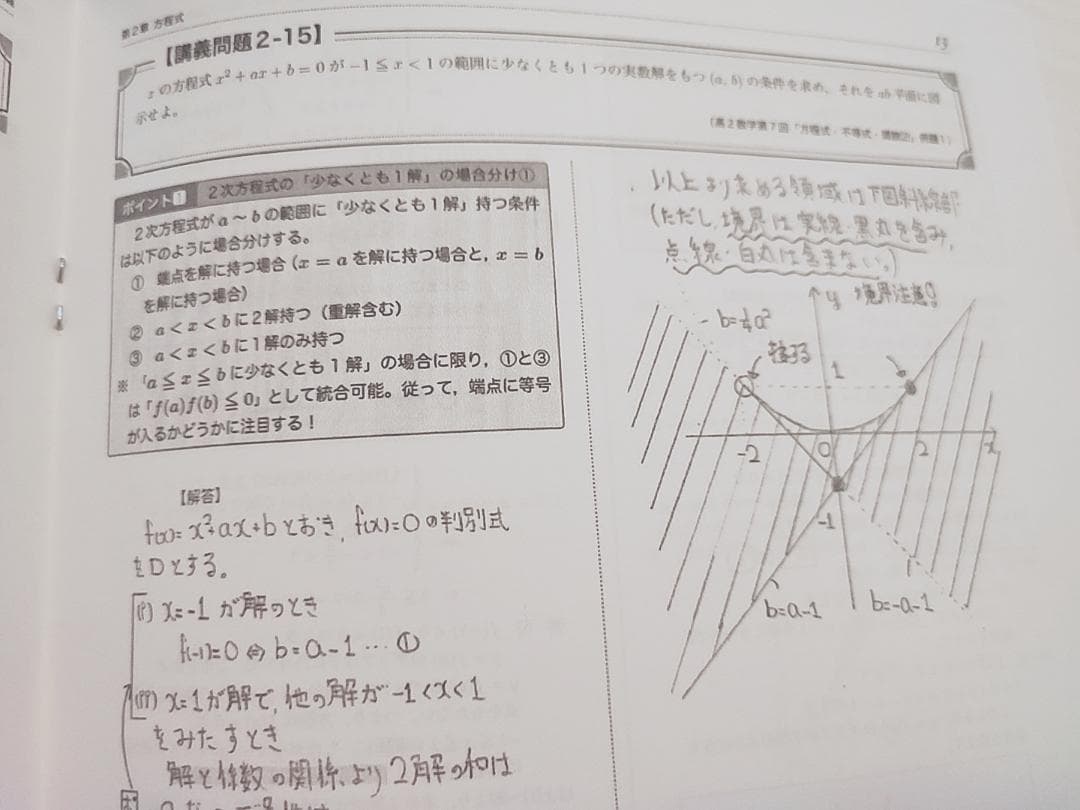 第2章 方程式
13
【講義問題2-15】
xの方程式x²+ax+b=0が-1≦x<1の範囲に少なくとも1つの実数解をもつ(a, b)の条件を求め、それをab平面に図
示せよ。
(高2数学第7回「方程式・不等式・関数②」例題1)
ポイント1 2次方程式の「少なくとも1解」の場合分け①
2次方程式がa~bの範囲に「少なくとも1解」持つ条件
は以下のように場合分けする。
① 端点を解に持つ場合(x=aを解に持つ場合と, x=b
を解に持つ場合)
② a<x<bに2解持つ(重解含む)
③ a<x<bに1解のみ持つ
※ 「a≦x≦bに少なくとも1解」の場合に限り, ①と③
は「f(a)f(b)≦0」として統合可能。従って, 端点に等号
が入るかどうかに注目する!
【解答】
f(x)=x²+ax+bとおき, f(x)=0の判別式
をDとする。
(i) x=-1が解のとき
f(-1)=0⇔b=a-1…①
(ii) x=1が解で, 他の解が-1<x<1
をみたすとき
解と係数の関係より2解の和は
以上より求める領域は下図斜線部
(ただし, 境界は実線・黒丸を含み,
点線・白丸は含まない。)
境界注意!
y
b=¼a²
接する
1
-2
0
2
x
-1
b=a-1
b=-a-1